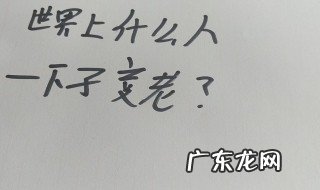 世界上什么人
一下子变老?
广东龙网